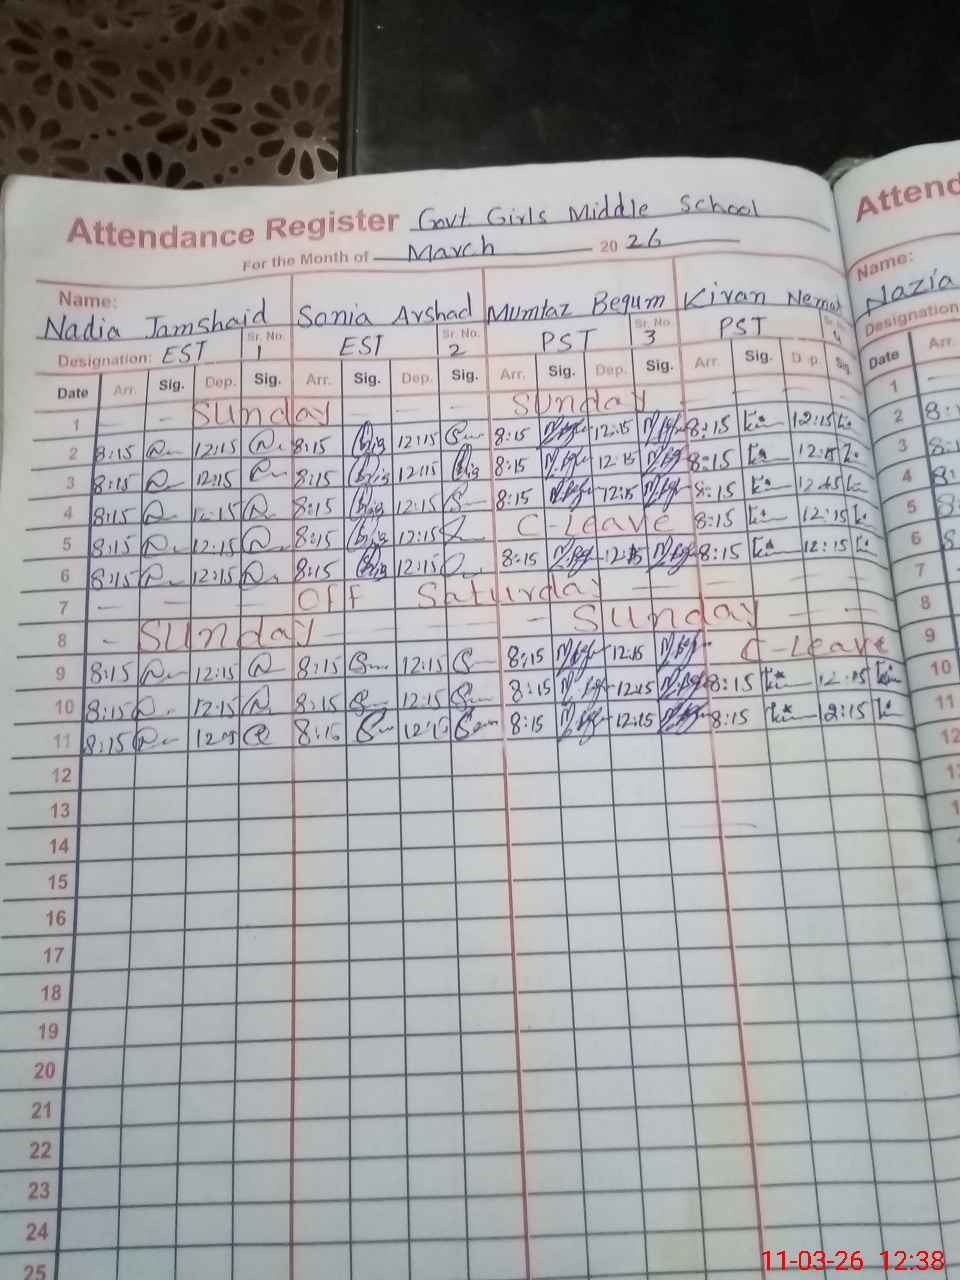 Attendance Register Govt Girls Middle School
For the Month of March 20 26
Name: Nadia Jamshaid Sonia Arshad Mumtaz Begum Kiran Nemat
Designation: EST Sr. No. 1 EST Sr. No. 2 PST Sr. No. 3 PST Sr. No. 4
Date Arr. Sig. Dep. Sig. Arr. Sig. Dep. Sig. Arr. Sig. Dep. Sig. Arr. Sig. Dep. Sig.
1 - - Sunday - - - Sunday - - -
2 8:15 12:15 8:15 12:15 8:15 12:15 8:15 12:15
3 8:15 12:15 8:15 12:15 8:15 12:15 8:15 12:15
4 8:15 12:15 8:15 12:15 8:15 12:15 8:15 12:15
5 8:15 12:15 8:15 12:15 C-Leave 8:15 12:15
6 8:15 12:15 8:15 12:15 8:15 12:15 8:15 12:15
7 - - - - OFF Saturday - - - -
8 - Sunday - - - - - Sunday - -
9 8:15 12:15 8:15 12:15 8:15 12:15 C-Leave
10 8:15 12:15 8:15 12:15 8:15 12:15 8:15 12:15
11 8:15 8:15 8:15 12:15 8:15 2:15
12
13
14
15
16
17
18
19
20
21
22
23
24
25
Attend
Name:
Nazia
Designation
Date Arr.
1 -
2 8:
3 8:
4 8:
5 8:
6 8
7
8
9
10
11
12
11-03-26 12:38